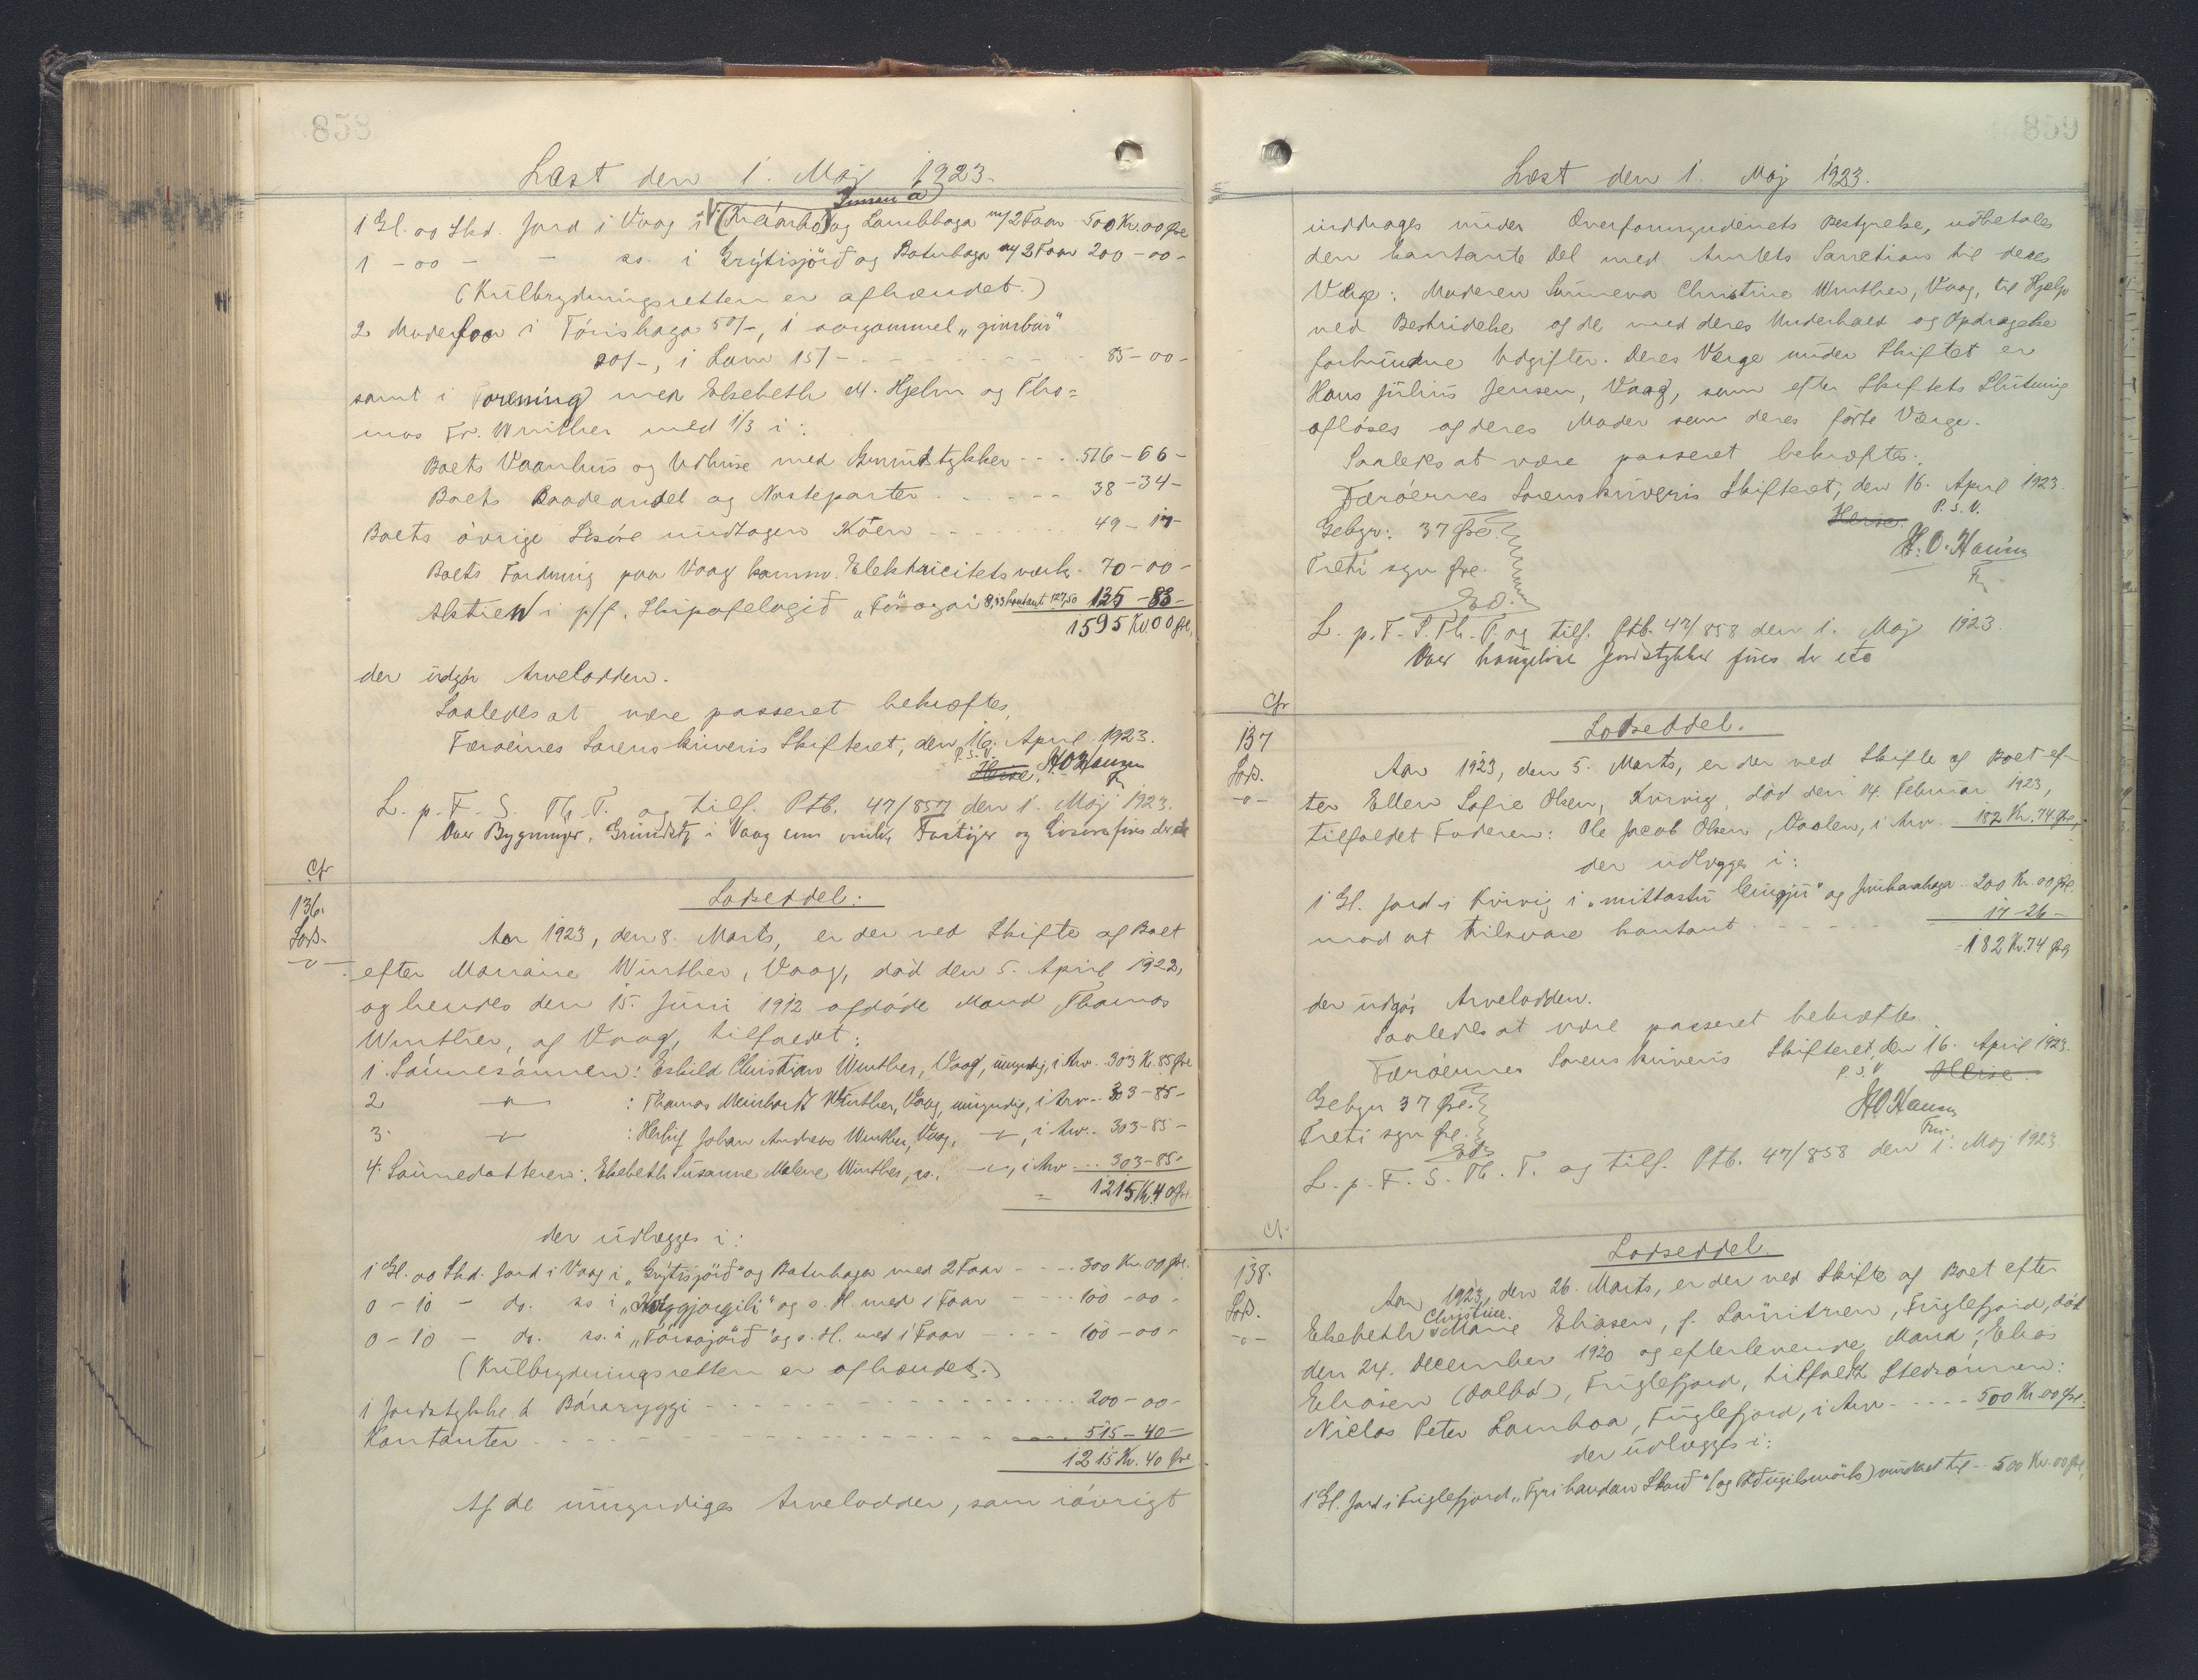 858
Læst den 1. Maj 1923.
Innan á
1 Gl. 00 Skd. Jord i Vaag i og Lambhaga m/ 2 Faar 500 Kr. 00 Øre
1 - 00 - - do. i Grýtisjörð og Batuhaga m/ 2 Faar 200 - 00 -
(Kulbrydningsretten er afhændet.)
2 Moderfaar i Tórishaga 50/-, 1 aargammel "gimbur"
20/-, 1 Lam 15/- 85 - 00 -
samt i Forening med Elsebeth M. Hjelm og Tho=
mas Fr. Winther med 1/3 i:
Boets Vaanhus og Udhuse med Grundstykker 516 - 66 -
Boets Baadeandel og Nøsteparter 38 - 34 -
Boets øvrige Løsøre undtagen Køen 49 - 17 -
Boets Fordring paa Vaag komm. Elektricitetsværk 70 - 00 -
Aktien i p/f. Skipafelagið 8,33 kontant 127,50 135 - 83 -
1595 Kr. 00 Øre,
der udgør Arvelodden.
Saaledes at være passeret bekræftes,
Færøernes Sorenskriveris Skifteret, den 16. April 1923.
P.S.V.
Heise. H O Hansen
F.
L. p. F. S. Th. T. og tilf. Ptb. 47/857 den 1. Maj 1923.
Over Bygninger, Grundst. i Vaag um Fartøjer og Løsøre fires der etc
Cfr
136.
Lods.
Lodseddel.
Aar 1923, den 8. Marts, er der ved Skifte af Boet
efter Mariane Winther, Vaag, død den 5. April 1922,
og hendes den 15. Juni 1912 afdøde Mand Thomas
Winther, af Vaag, tilfaldet:
1. Sønnesønnen: Eskild Christian Winther, Vaag, umyndig, i Arv 303 Kr. 85 Øre
2 -"- : Thomas Meinhardt Winther, Vaag, umyndig, i Arv 303 - 85 -
3. -"- : Herluf Johan Andreas Winther, Vaag, -"-, i Arv 303 - 85 -
4. Sønnedatteren: Elsebeth Susanne Malene Winther, do. -"-, i Arv 303 - 85 -
= 1215 Kr. 40 Øre.
der udlægges i:
1 Gl. 00 Skd. Jord i Vaag i "Grýtisjörð" og Batuhaga med 2 Faar 300 Kr. 00 Øre.
0 - 10 - do. do. i og s. H. med 1 Faar 100 - 00 -
0 - 10 - do. do. i "Tórsajörð" og s. H. med 1 Faar 100 - 00 -
(Kulbrydningsretten er afhændet.)
1 Jordstykke á Báraryggi 200 - 00 -
Kontanter 515 - 40 -
1215 Kr. 40 Øre
Af de umyndiges Arvelodder, som iøvrigt
859
Læst den 1. Maj 1923.
inddrages under Overformynderiets Bestyrelse, udbetales
den kontante Del med Amtets Sanction til deres
Værge: Moderen Sunneva Christine Winther, Vaag, til Hjælp
ved Bestridelse af de med deres Underhold og Opdragelse
forbundne Udgifter. Deres Værge under Skiftet er
Hans Julius Jensen, Vaag, som efter Skiftets Slutning
afløses af deres Moder som deres fødte Værge.
Saaledes at være passeret bekræftes.
Færøernes Sorenskriveris Skifteret, den 16. April 1923.
Heise. P.S.V.
Gebyr: 37 Øre. H. O. Hansen
Treti syv Øre. F.
L. p. F. S. Th. T. og tilf. Ptb. 47/858 den 1. Maj 1923.
Over Jordstykker fires dr etc
Cfr
137
Lods.
Lodseddel.
Aar 1923, den 5. Marts, er der ved Skifte af Boet ef-
ter Ellen Sofie Olsen, Kvivig, død den 14. Februar 1923,
tilfaldet Faderen: Ole Jacob Olsen, Vaalen, i Arv 182 Kr. 74 Øre,
der udlægges i:
1 Gl. Jord i Kvivig i "mittastu lengju" og 200 Kr. 00 Øre.
mod at tilsvare kontant 17 - 26 -
= 182 Kr. 74 Øre
der udgør Arvelodden.
Saaledes at være passeret bekræftes
Færøernes Sorenskriveris Skifteret, den 16. April 1923.
P.S.V. Heise.
Gebyr 37 Øre. H O Hansen
Treti syv Øre. Fm.
L. p. F. S. Th. T. og tilf. Ptb. 47/858 den 1. Maj 1923.
Cfr
138.
Lods.
Lodseddel.
Aar 1923, den 26. Marts, er der ved Skifte af Boet efter
Christine
Elsebeth Marie Eliasen, f. Fuglefjord, død
den 24. December 1920 og efterlevende Mand, Elias
Eliasen (Dalbø), Fuglefjord, tilfaldt Stedsønnen:
Niclas Peter Lamhaa, Fuglefjord, i Arv 500 Kr. 00 Øre.
der udlægges i:
1 Gl. Jord i Fuglefjord "Fyri handan Skarð" (og vurderet til 500 Kr. 00 Øre,